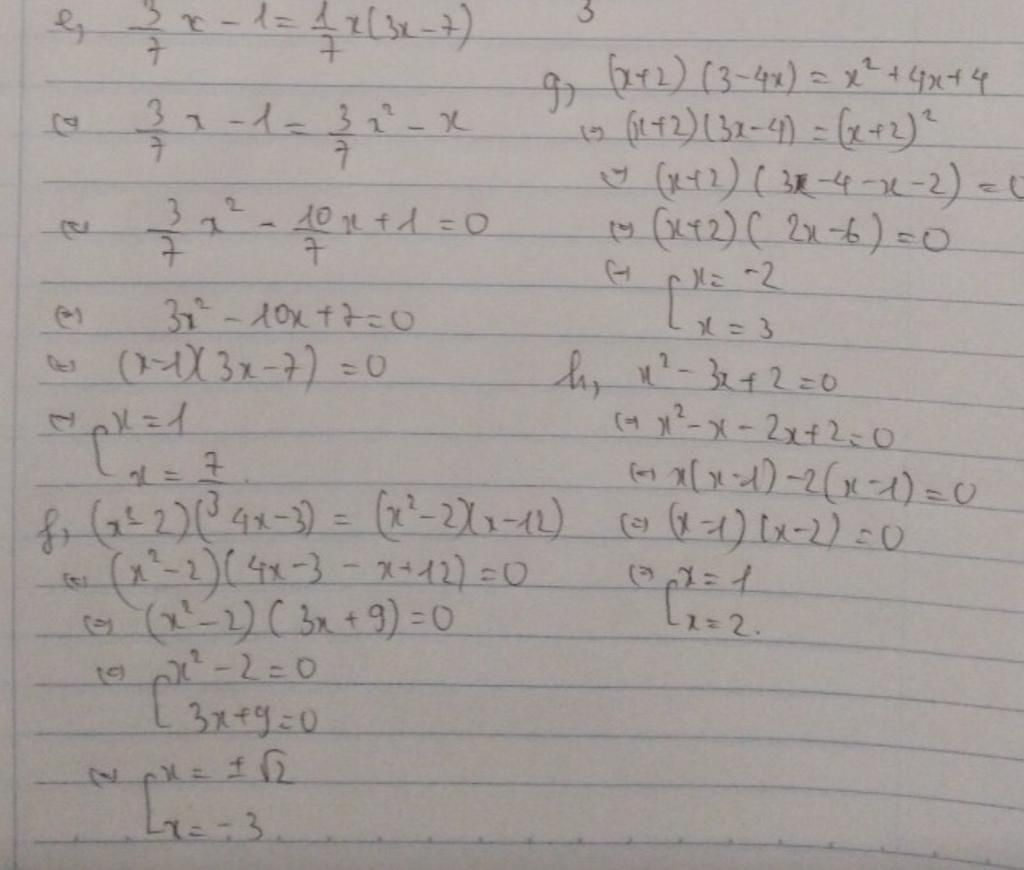 e, 3/7 x - 1 = 1/7 x(3x - 7)
⇔ 3/7 x - 1 = 3/7 x² - x
⇔ 3/7 x² - 10/7 x + 1 = 0
⇔ 3x² - 10x + 7 = 0
⇔ (x-1)(3x-7) = 0
⇔ [ x = 1
x = 7/3
f, (x²-2)(4x-3) = (x²-2)(x-12)
⇔ (x²-2)(4x-3 - x+12) = 0
⇔ (x²-2)(3x+9) = 0
⇔ [ x² - 2 = 0
3x+9=0
⇔ [ x = ±√2
x = -3
3
g, (x+2)(3-4x) = x²+4x+4
⇔ (x+2)(3x-4) = (x+2)²
⇔ (x+2)(3x-4-x-2) = 0
⇔ (x+2)(2x-6) = 0
⇔ [ x = -2
x = 3
h, x² - 3x + 2 = 0
⇔ x² - x - 2x + 2 = 0
⇔ x(x-1) - 2(x-1) = 0
⇔ (x-1)(x-2) = 0
⇔ [ x = 1
x = 2.